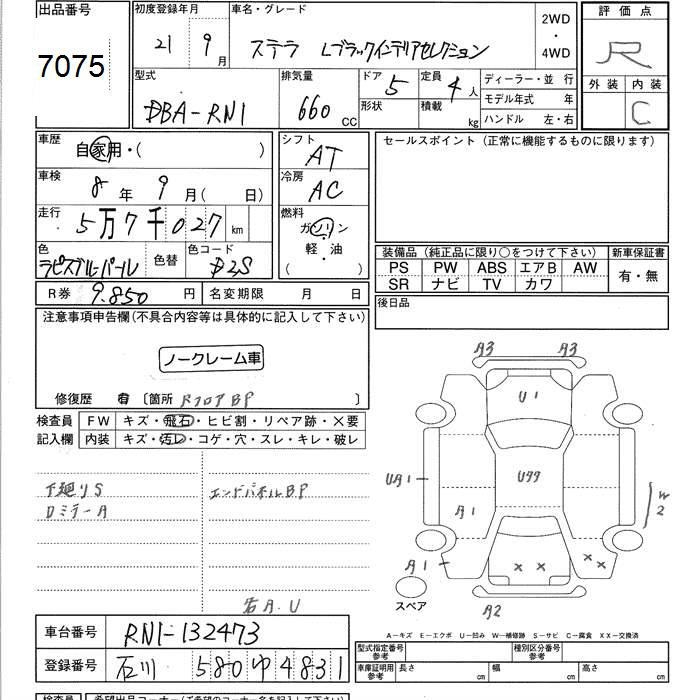 出品番号
7075
初度登録年月
21 9月
車名・グレード
ステラ Lブラックインテリアセレクション
2WD
・
4WD
評価点
R
外装 内装
C
型式
DBA-RN1
排気量
660 CC
ドア 5
形状
定員 4人
積載 kg
ディーラー・並 行
モデル年式 年
ハンドル 左・右
車歴
自家用・( )
車検
8年 9月( 日)
走行
5万7千027 km
色
ラピスブルーパール
色替
色コード
D2S
シフト
AT
冷房
AC
燃料
ガソリン
・
軽・油
( )
R券 9.850 円
名変期限 月 日
セールスポイント (正常に機能するものに限ります)
装備品 (純正品に限り○をつけて下さい)
新車保証書
PS PW ABS エアB AW
SR ナビ TV カワ
有・無
後日品
注意事項申告欄(不具合内容等は具体的に記入して下さい)
ノークレーム車
修復歴 有 〔箇所 RフロアBP 〕
検査員
記入欄
FW キズ・飛石・ヒビ割・リペア跡・×要
内装 キズ・汚レ・コゲ・穴・スレ・キレ・破レ
下廻りS
ロミラーA
エンドパネルBP
A.U
A3 A3
U1
UA1
Uタタ
A1
W2
A1
× ×
× ×
A2
スペア
A-キズ E-エクボ U-凹み W-補修跡 S-サビ C-腐食 XX-交換済
車台番号 RN1-132473
登録番号 石川 580 ゆ 4831
型式指定番号
参考
種別区分番号
参考
車庫証明用
参考
長さ cm
幅 cm
高さ cm